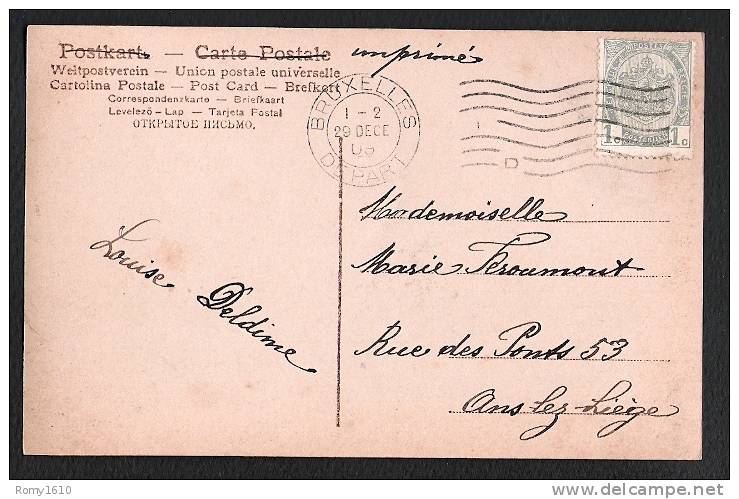 Postkart. — Carte Postale imprimé
Weltpostverein — Union postale universelle
Cartolina Postale — Post Card — Brefkort
Correspondenzkarte — Briefkaart
Levelező-Lap — Tarjeta Postal
ОТКРЫТОЕ ПИСЬМО.
BRUXELLES
1 - 2
29 DECE
09
DEPART
D
POSTES
1c 1c
Mademoiselle
Marie Féroumont
Rue des Ponts 53
Ans-lez-Liège
Louise Deldime
Romy1610
delcampe.net